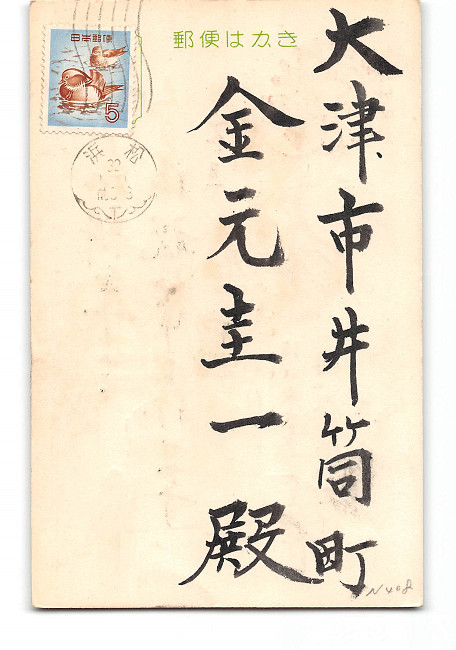 郵便はカき
日本郵便
5
浜松
32
大津市井筒町
金元圭一殿
N408